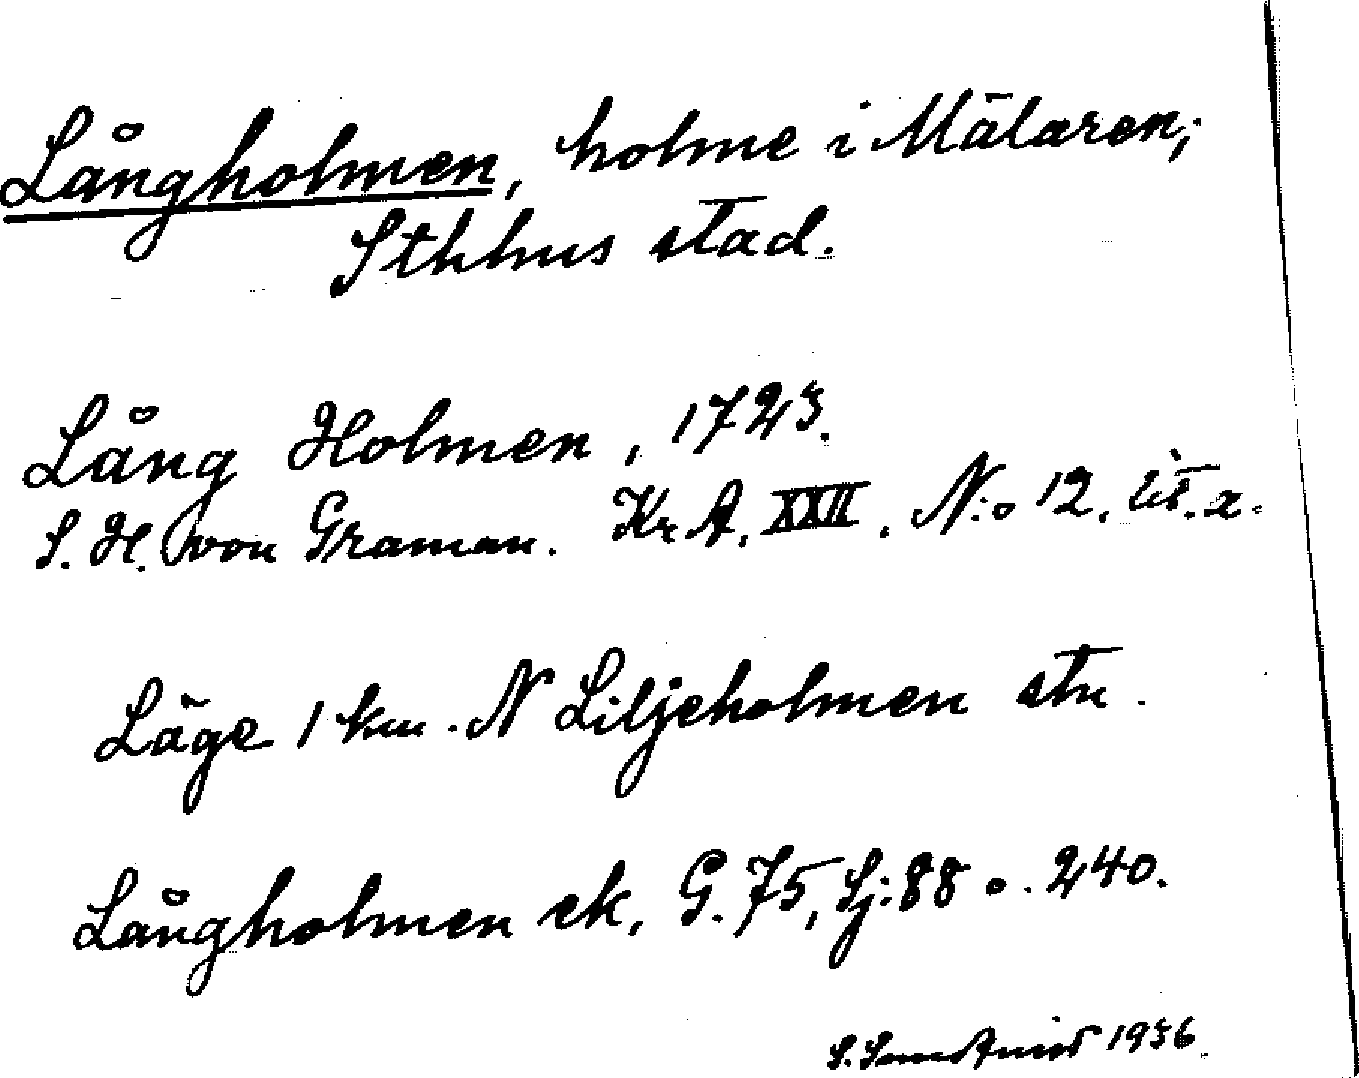 Långholmen, holme i Mälaren;
Sthlms stad.
Lång Holmen, 1723.
S. H. von Graman. Kr A, XXII, N:o 12, lit. x.
Läge 1 km. N Liljeholmen stn.
Långholmen ek, G. 75, Sj: 88 o. 240.
S. 1936.